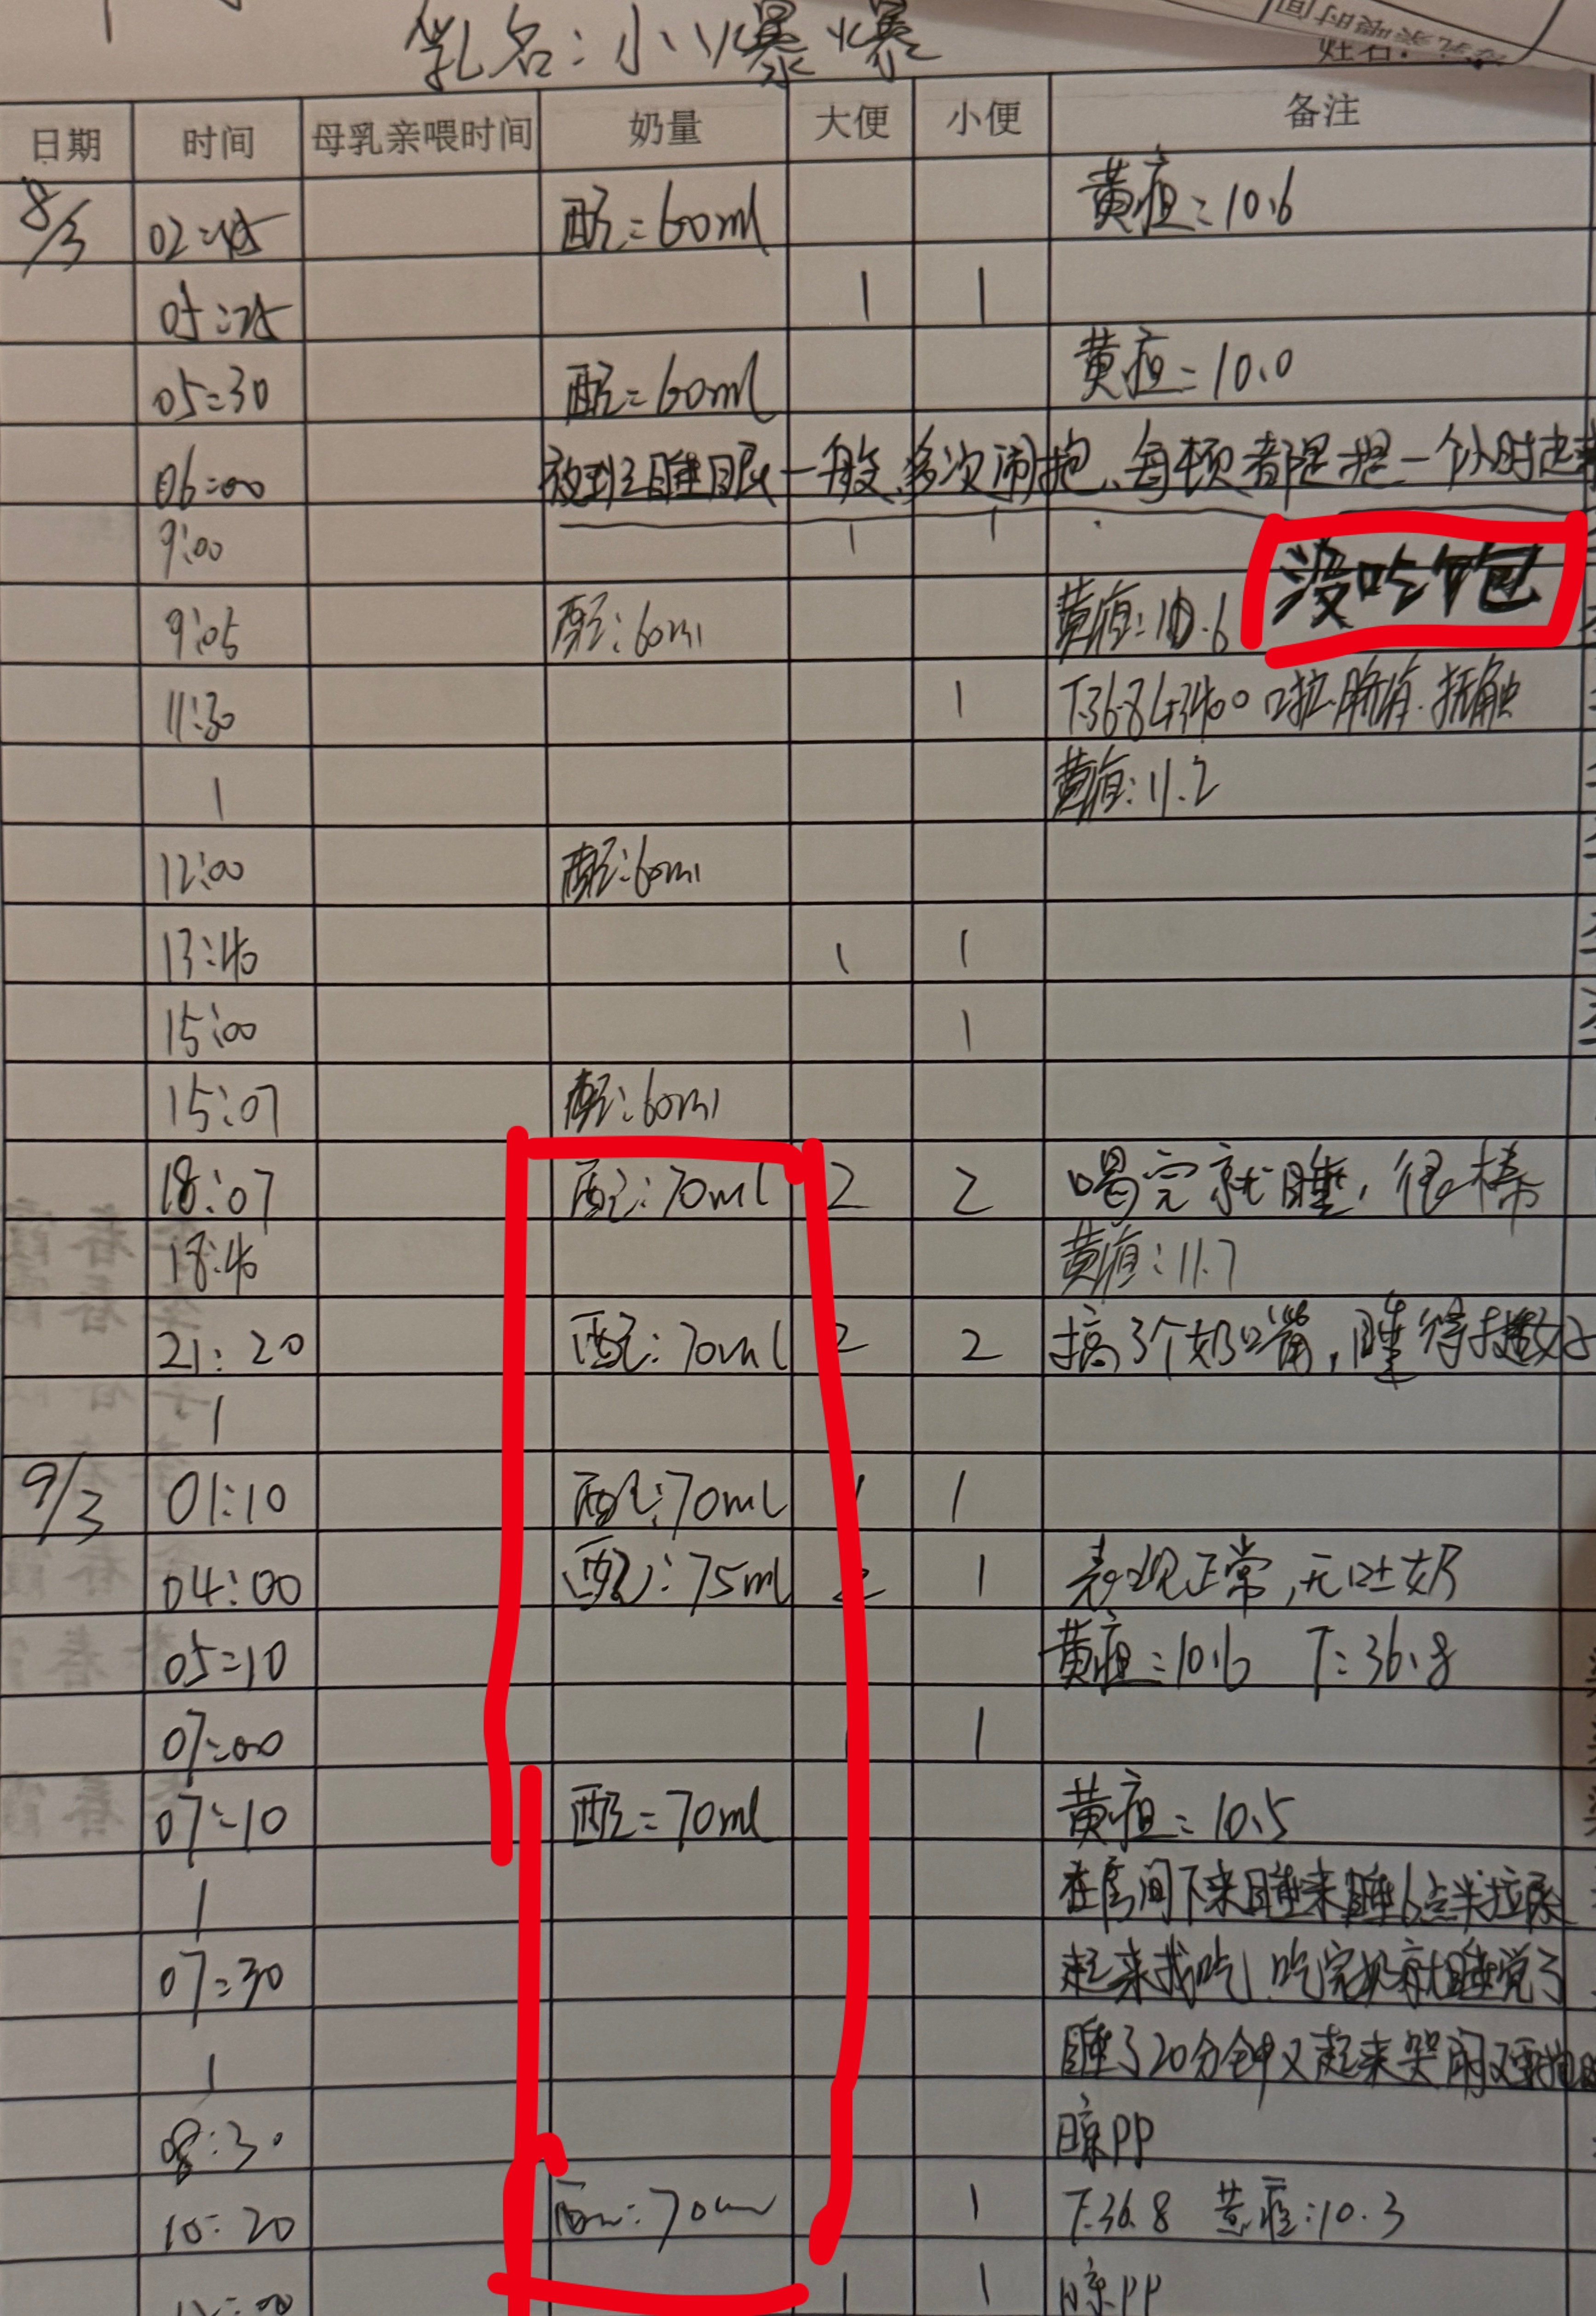 乳名:小小爆爆
姓名:
日期 时间 母乳亲喂时间 奶量 大便 小便 备注
8/3 02:45 配:60ml 黄疸:10.6
05:25 1 1
05:30 配:60ml 黄疸:10.0
06:00 夜班睡眠一般,多次闹抱、每顿都是提一个小时起来
9:00 1 1
没吃饱
9:05 配:60ml 黄疸:10.6
11:30 1 T:36.8 口护.脐护.抚触
1 黄疸:11.2
12:00 配:60ml
13:40 1 1
15:00 1
15:07 配:60ml
18:07 配:70ml 2 2 喝完就睡,很棒
18:40 黄疸:11.7
21:20 配:70ml 2 2 搞了个奶嘴,睡得挺好
1
9/3 01:10 配:70ml 1 1
04:00 配:75ml 2 1 表现正常,无吐奶
05:10 黄疸:10.6 T:36.8
07:00 1 1
07:10 配:70ml 黄疸:10.5
1 在房间下来睡来睡6点半拉尿
07:30 起来找吃,吃完奶就睡觉了
1 睡了20分钟又起来哭闹又要抱
08:30 晾PP
10:20 配:70ml 1 T:36.8 黄疸:10.3
1 1 晾PP